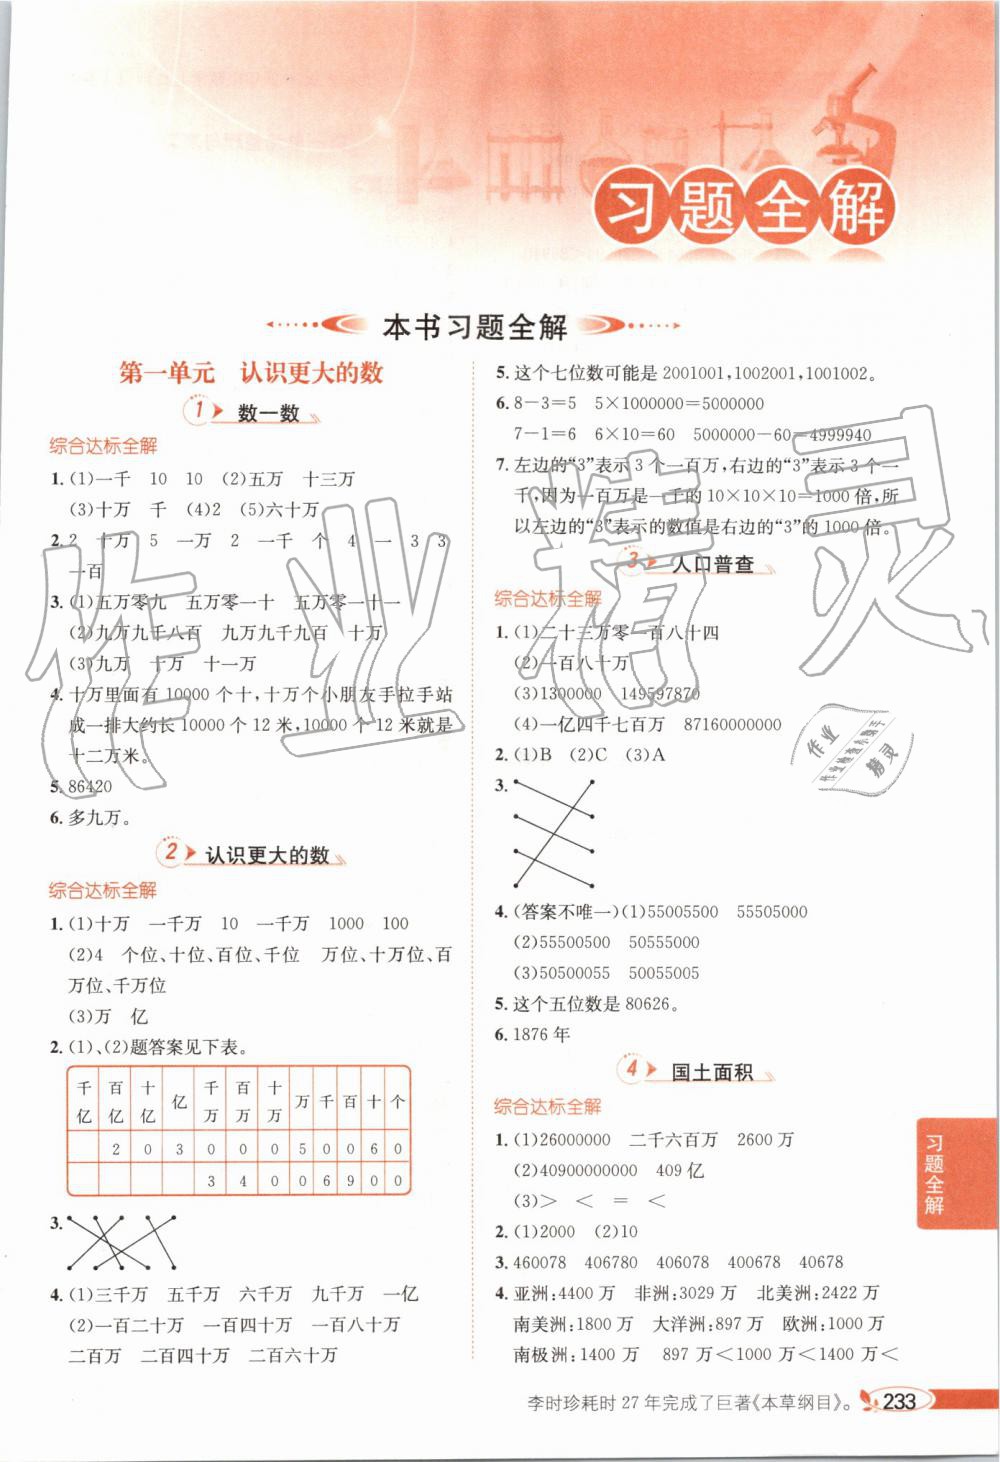 习题全解
本书习题全解
第一单元 认识更大的数
1 数一数
综合达标全解
1.(1)一千 10 10 (2)五万 十三万
(3)十万 千 (4)2 (5)六十万
2.2 十万 5 一万 2 一千 个 4 一 3 3
一百
3.(1)五万零九 五万零一十 五万零一十一
(2)九万九千八百 九万九千九百 十万
(3)九万 十万 十一万
4.十万里面有 10000 个十,十万个小朋友手拉手站
成一排大约长 10000 个 12 米,10000 个 12 米就是
十二万米。
5.86420
6.多九万。
2 认识更大的数
综合达标全解
1.(1)十万 一千万 10 一千万 1000 100
(2)4 个位、十位、百位、千位 万位、十万位、百
万位、千万位
(3)万 亿
2.(1)、(2)题答案见下表。
千亿 百亿 十亿 亿 千万 百万 十万 万 千 百 十 个
2 0 3 0 0 0 5 0 0 6 0
3 4 0 0 6 9 0 0
3.
4.(1)三千万 五千万 六千万 九千万 一亿
(2)一百二十万 一百四十万 一百八十万
二百万 二百四十万 二百六十万
5.这个七位数可能是 2001001,1002001,1001002。
6.8-3=5 5×1000000=5000000
7-1=6 6×10=60 5000000-60=4999940
7.左边的“3”表示 3 个一百万,右边的“3”表示 3 个一
千,因为一百万是一千的 10×10×10=1000 倍,所
以左边的“3”表示的数值是右边的“3”的 1000 倍。
3 人口普查
综合达标全解
1.(1)二十三万零一百八十四
(2)一百八十万
(3)1300000 149597870
(4)一亿四千七百万 87160000000
2.(1)B (2)C (3)A
3.
4.(答案不唯一)(1)55005500 55505000
(2)55500500 50555000
(3)50500055 50055005
5.这个五位数是 80626。
6.1876 年
4 国土面积
综合达标全解
1.(1)26000000 二千六百万 2600 万
(2)40900000000 409 亿
(3)> < = <
2.(1)2000 (2)10
3.460078 406780 406078 400678 40678
4.亚洲:4400 万 非洲:3029 万 北美洲:2422 万
南美洲:1800 万 大洋洲:897 万 欧洲:1000 万
南极洲:1400 万 897 万<1000 万<1400 万<
习题全解
李时珍耗时 27 年完成了巨著《本草纲目》。 233
作业精灵
作业
作业检查小助手
精灵